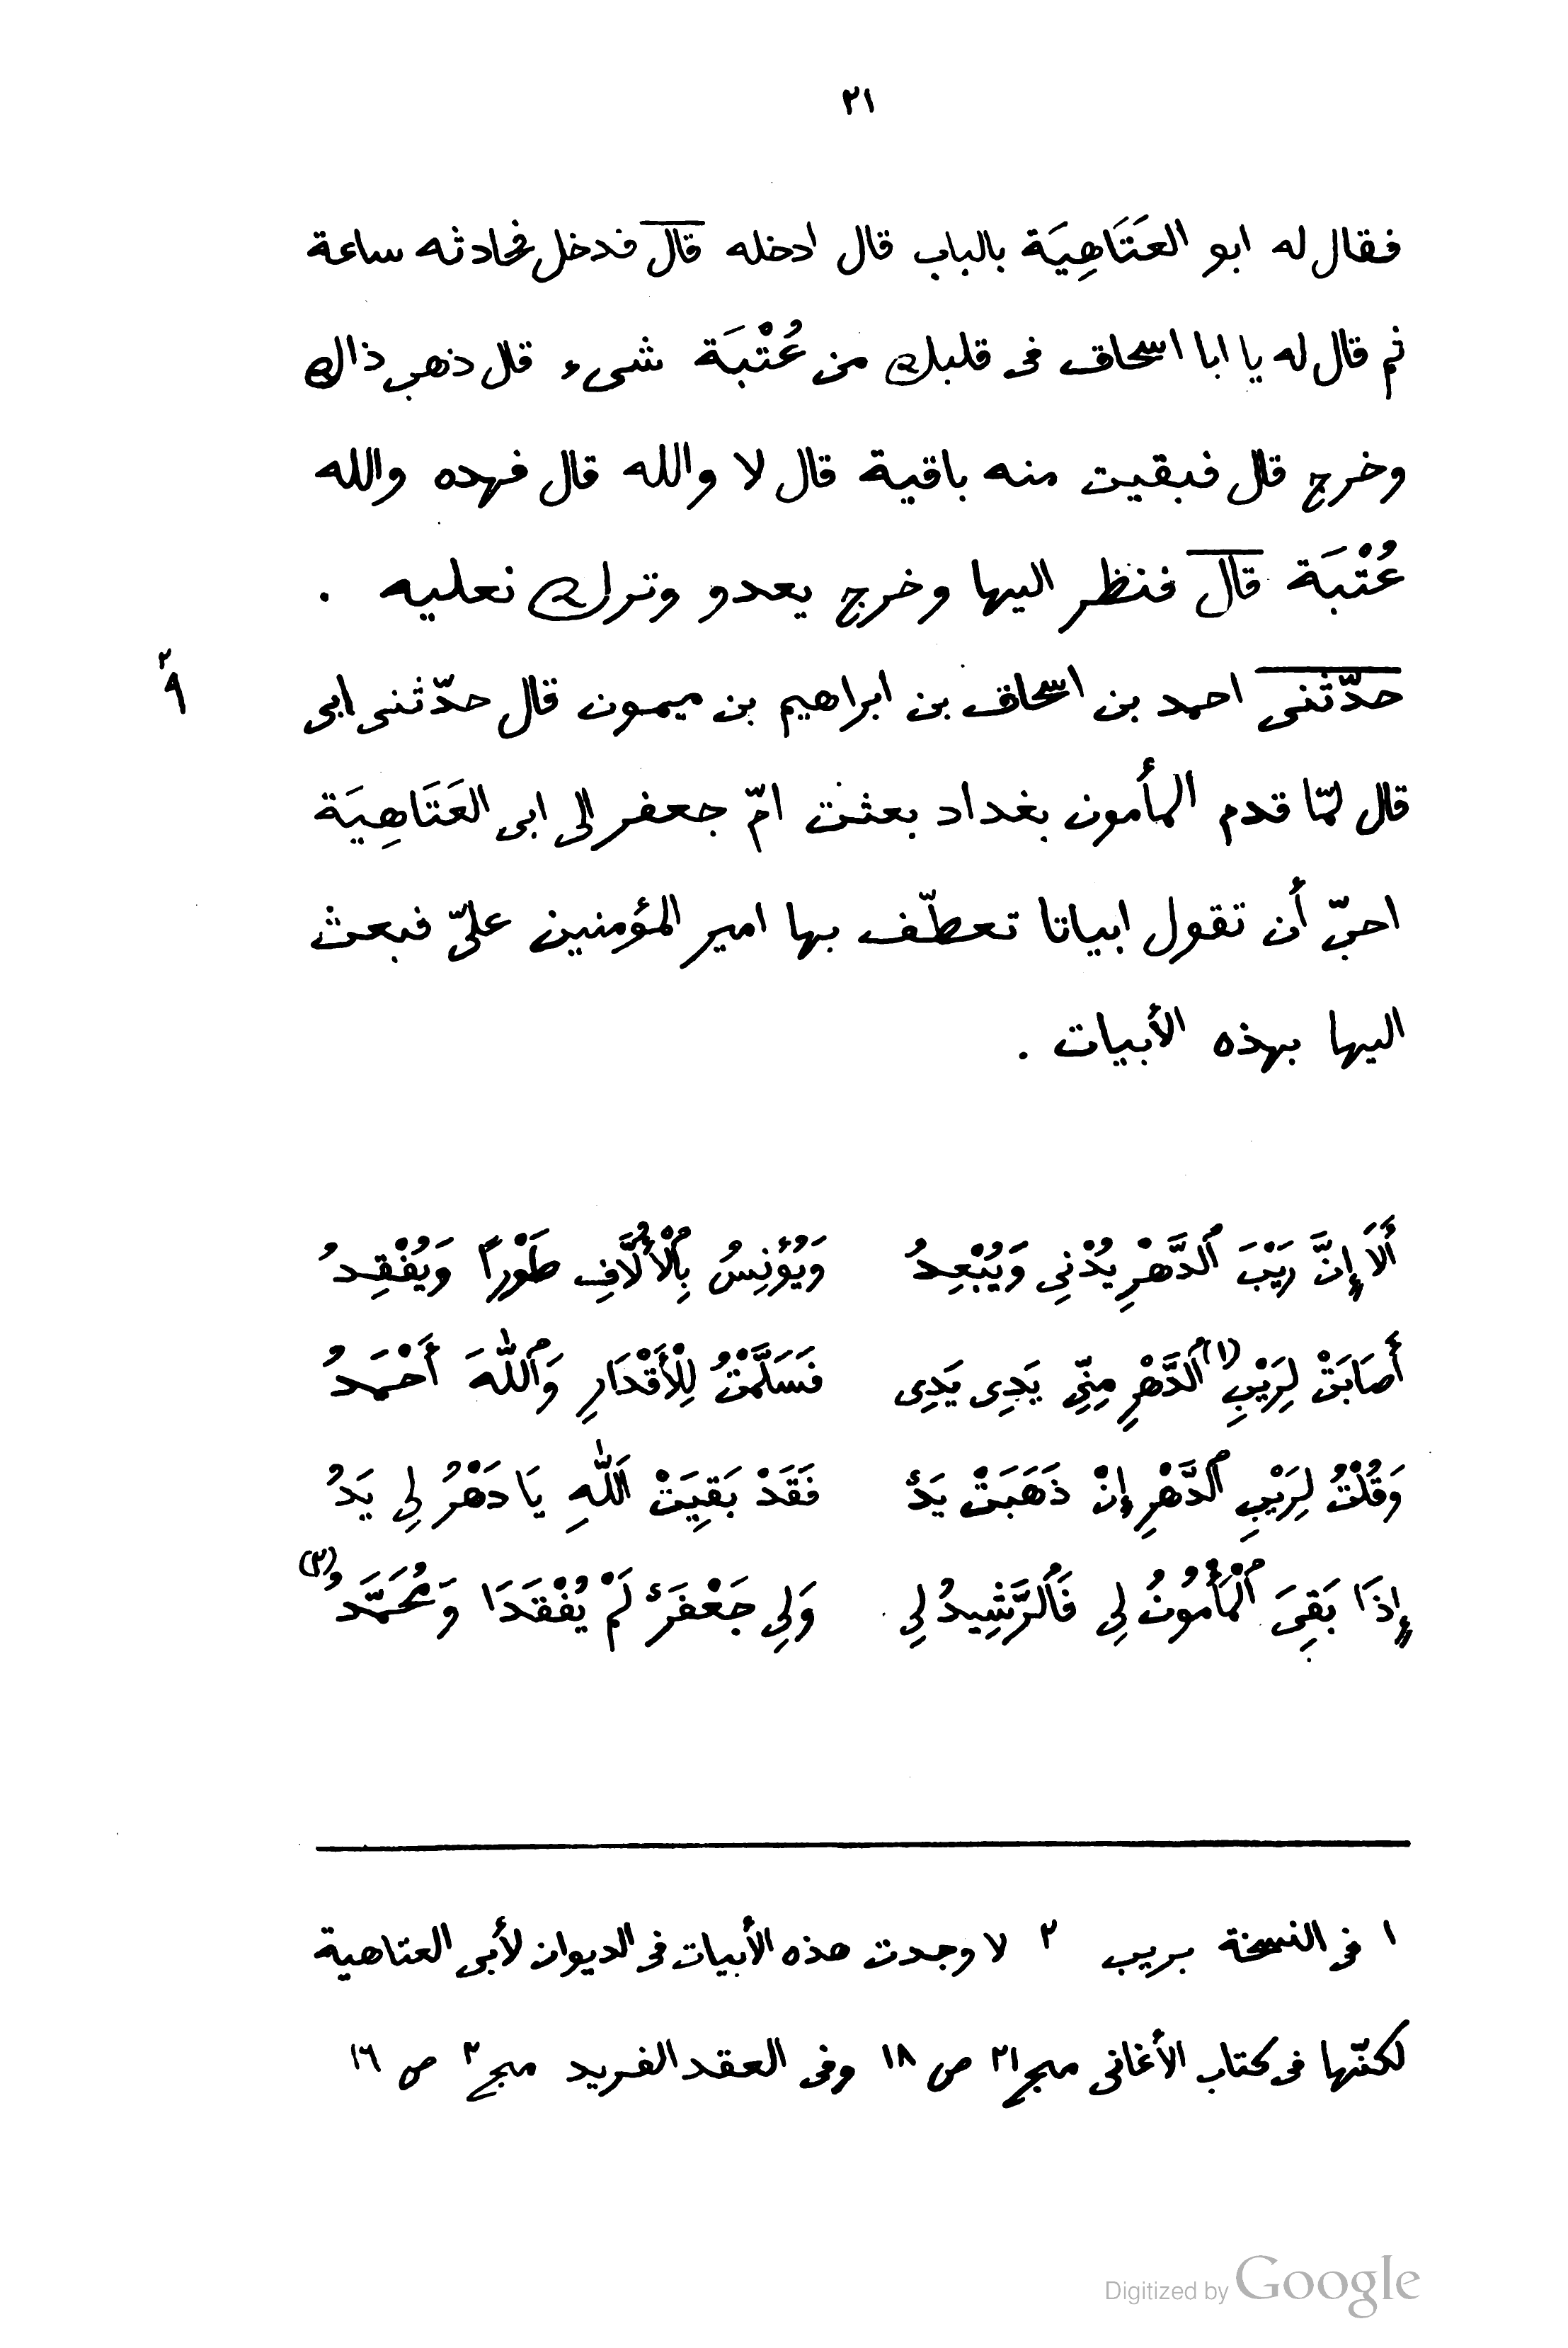 ٢١
فقال له ابو العَتَاهِيَة بالباب قال ادخله قال فدخل فحادثه ساعة
ثم قال له يا ابا اسحاق فى قلبك من عُتْبَة شىء قال ذهب ذاك
وخرج قال فبقيت منه باقية قال لا والله قال فهده والله
عُتْبَة قال فنظر اليها وخرج يعدو وترك نعليه .
حدّثنى احمد بن اسحاق بن ابراهيم بن ميمون قال حدّثنى ابى
قال لمّا قدم المأمون بغداد بعثت امّ جعفر الى ابى العَتَاهِيَة
احبّ أن تقول ابياتا تعطّف بها امير المؤمنين علىّ فبعث
اليها بهذه الأبيات .
أَلَا إِنَّ رَيْبَ ٱلدَّهْرِ يُدْنِى وَيُبْعِدُ وَيُؤنِسُ بِٱلْأُلَّافِ طَوْرًا وَيُفْقِدُ
أَصَابَتْ لِرَيْبِ (١) ٱلدَّهْرِ مِنِّى يَدِى يَدِى فَسَلَّمْتُ لِلْأَقْدَارِ وَٱللّٰهَ أَحْمَدُ
وَقُلْتُ لِرَيْبِ ٱلدَّهْرِ إِنْ ذَهَبَتْ يَدٌ فَقَدْ بَقِيَتْ ٱللّٰهِ يَا دَهْرُ لِى يَدُ
إِذَا بَقِىَ ٱلْمَأْمُونُ لِى فَٱلرَّشِيدُ لِى وَلِى جَعْفَرٌ لَمْ يُفْقَدَا وَمُحَمَّدُ (٢)
١ فى النسخة بريب ٢ لا وجدت هذه الأبيات فى الديوان لأبى العتاهية
لكنّها فى كتاب الأغانى مجج ٢١ ص ١٨ وفى العقد الفريد مجج ٢ ص ١٦
Digitized by Google